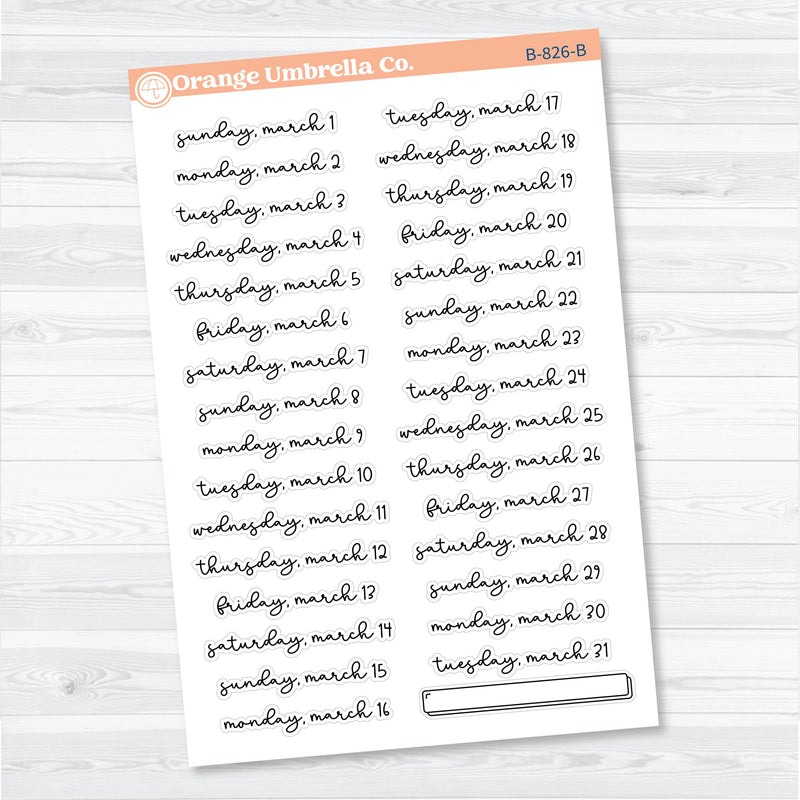 Orange Umbrella Co.
B-826-B
sunday, march 1
monday, march 2
tuesday, march 3
wednesday, march 4
thursday, march 5
friday, march 6
saturday, march 7
sunday, march 8
monday, march 9
tuesday, march 10
wednesday, march 11
thursday, march 12
friday, march 13
saturday, march 14
sunday, march 15
monday, march 16
tuesday, march 17
wednesday, march 18
thursday, march 19
friday, march 20
saturday, march 21
sunday, march 22
monday, march 23
tuesday, march 24
wednesday, march 25
thursday, march 26
friday, march 27
saturday, march 28
sunday, march 29
monday, march 30
tuesday, march 31